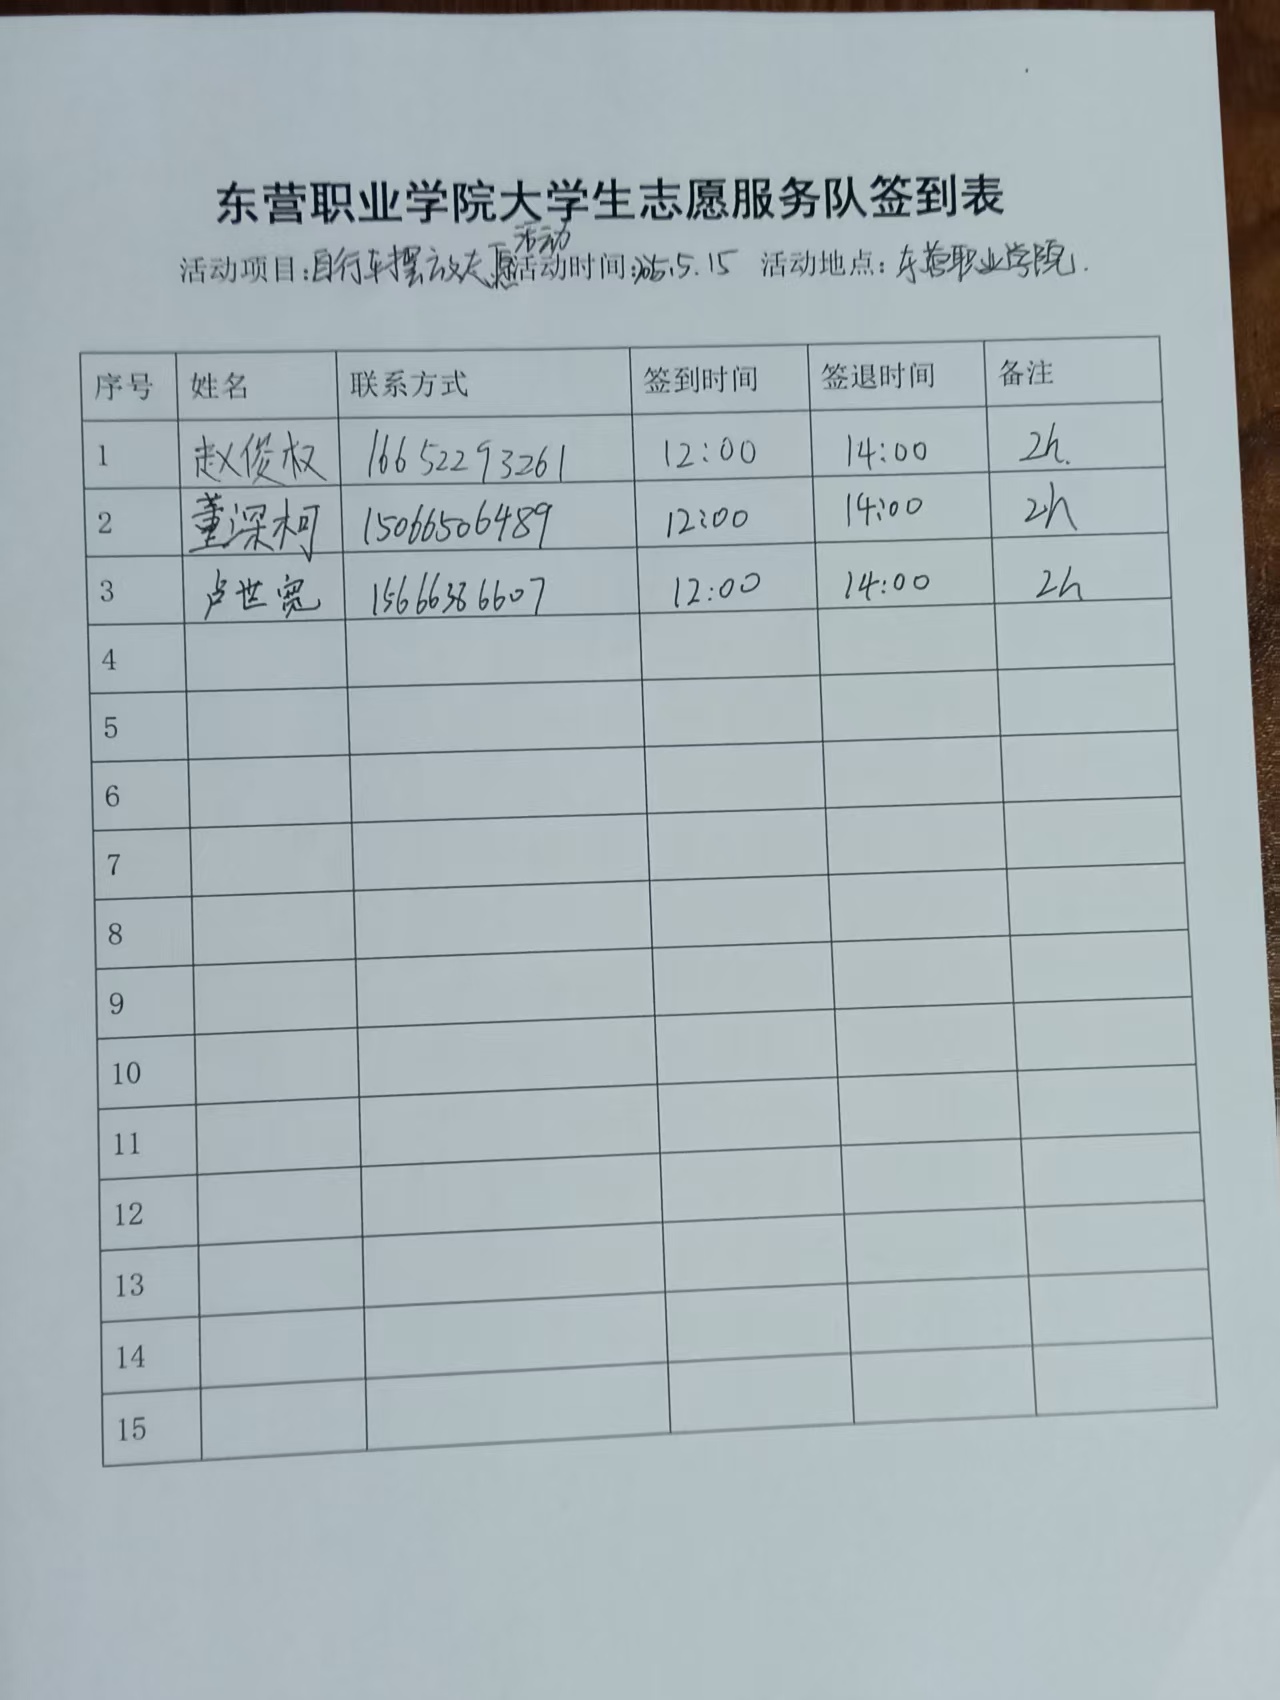 东营职业学院大学生志愿服务队签到表
活动
活动项目:自行车摆放志愿活动时间:25.5.15 活动地点:东营职业学院.
序号 姓名 联系方式 签到时间 签退时间 备注
1 赵俊权 16652293261 12:00 14:00 2h.
2 董深柯 15066506489 12:00 14:00 2h
3 卢世宽 15666386607 12:00 14:00 2h
4
5
6
7
8
9
10
11
12
13
14
15